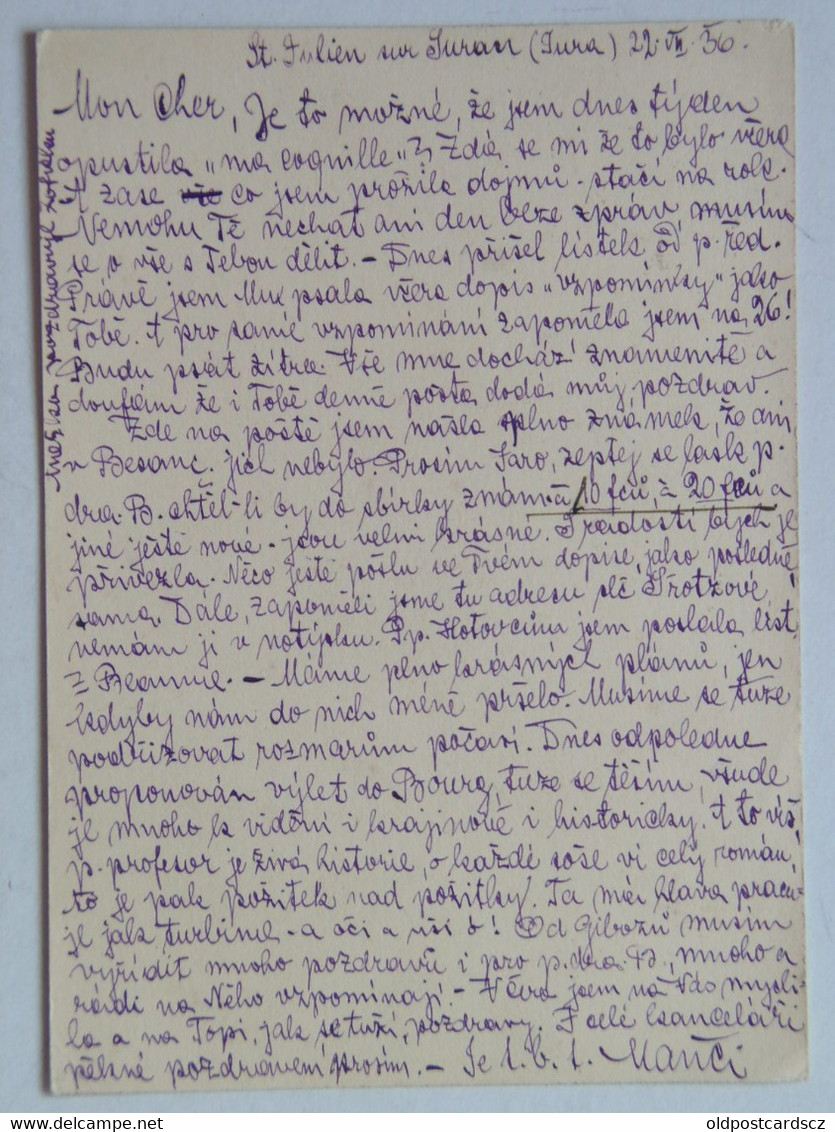 St. Julien sur Suran (Jura) 22. VII. 36.
Mon Cher, Je to možné, že jsem dnes týden
opustila „ma coquille"? Zdá se mi že to bylo včera
A zase co jsem prožila dojmů - stačí na rok.
Nemohu Tě nechat ani den beze zpráv musím
se o vše s Tebou dělit. - Dnes přišel lístek od p. řed.
Právě jsem Mu psala včera dopis „vzpomínky" jako
Tobě. A pro samé vzpomínání zapoměla jsem na 26!
Budu psát zítra. Vše mne dochází znamenitě a
doufám že i Tobě denně pošta dodá můj pozdrav.
Zde na poště jsem našla plno známek, že ani
v Besanç. jich nebylo. Prosím Jaro, zeptej se lask. p.
dra. B. chtěl-li by do sbírky známku à 10 fců, à 20 fců a
jiné ještě nové - jsou velmi krásné. S radostí bych je
přivezla. Něco ještě pošlu ve Tvém dopise, jako posledně
sama. Dále, zapoměli jsme tu adresu slč
nemám ji v notýsku. P.p. Hotovcům jsem poslala líst.
z Beaune. - Máme plno krásných plánů, jen
kdyby nám do nich méně pršelo. Musíme se tuze
podřizovat rozmarům počasí. Dnes odpoledne
proponován výlet do Bourg, tuze se těším, všude
je mnoho k vidění i krajinově i historicky. A to víš,
p. profesor je živá historie, o každé soše ví celý román,
to je pak požitek nad požitky! Ta má hlava pracu-
je jak turbina - a oči a uši ó! Od Gibozů musím
vyřídit mnoho pozdravů i pro p. dra. B., mnoho a
rádi na Něho vzpomínají. - Včera jsem na Vás mysli-
la a na Topi, jak se tuží, pozdravy. I celé kanceláři
pěkné pozdravení prosím. - Je t. b. t. Manči
pozdravuje
oldpostcardscz